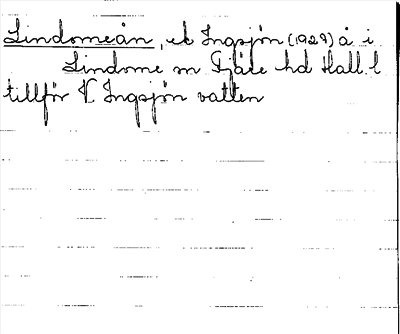 Lindomeån, el Ingsjön (1929) å i
Lindome sn Fjäre hd Hall. l
tillför V. Ingsjön vatten